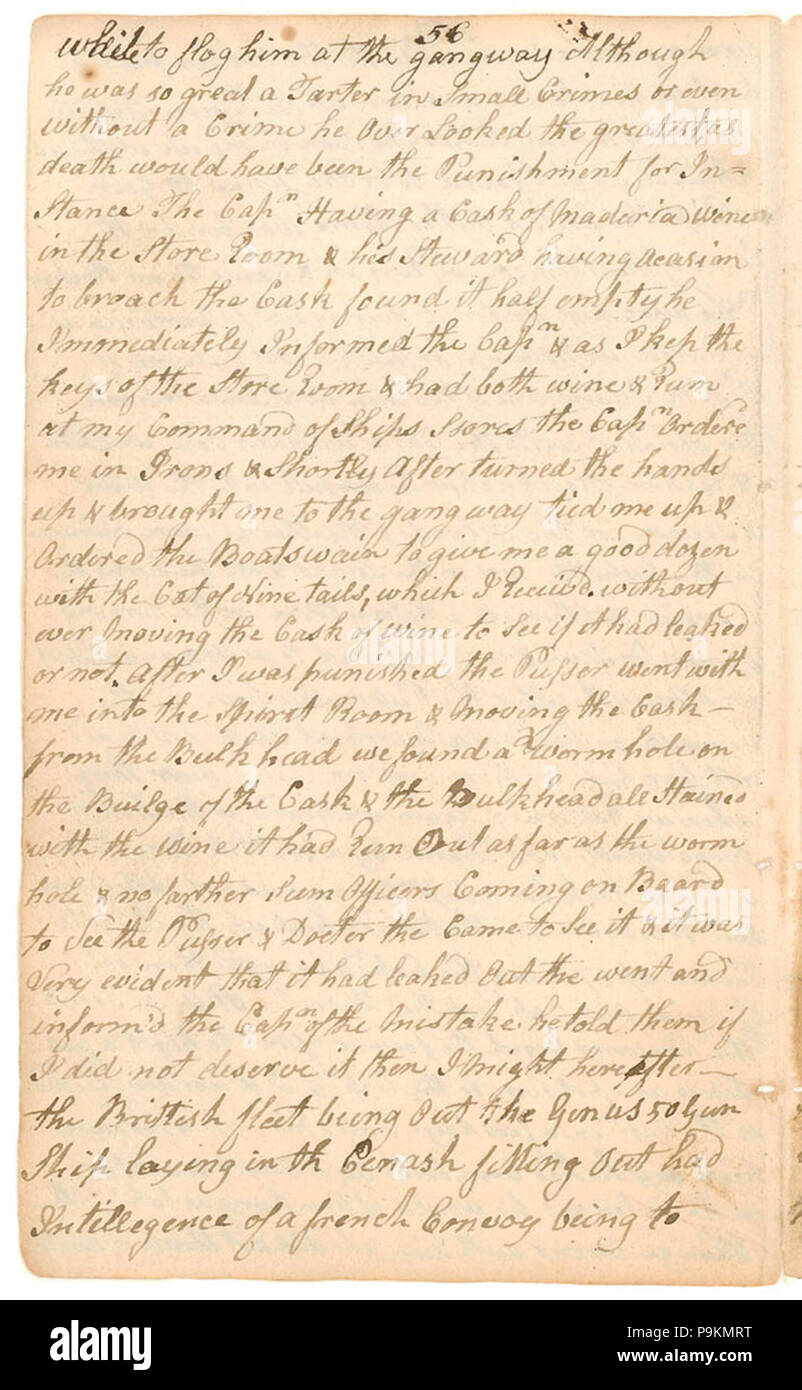 56
while to flog him at the gangway Although
he was so great a Tarter in Small Crimes or even
without a Crime he Over Looked the greatest as
death would have been the Punishment for In=
Stance The Capn Having a Cask of Maderia Wine
in the Store Room & his Steward having acasion
to broach the Cask found it half empty he
Immediately Informed the Capn & as I kep the
keys of the Store Room & had both wine & Rum
at my Command of Ships Stores the Capn Ordere
me in Irons & Shortly After turned the hands
up & brought me to the gangway tied me up &
Ordered the Boatswain to give me a good dozen
with the Cat of Nine tails, which I Received. without
ever Moving the Cask of wine to See if it had leaked
or not. After I was punished the Pusser went with
me into the Spirit Room & Moving the Cask —
from the Bulk head we found a worm hole on
the Builge of the Cask & the Bulkhead all Stained
with the wine it had Run Out as far as the worm
hole & no farther Sum Officers Coming on Board
to See the Pusser & Docter the Came to See it & it was
Very evident that it had leaked Out the went and
inform'd the Capn of the Mistake he told them if
I did not deserve it then I Might hereafter —
the British fleet being Out the Genus 50 Gun
Ship laying in th fitting Out had
Intellegence of a french Convoy being to
alamy
alamy
alamy
alamy
a
a
a
a
alamy
Image ID: P9KMRT
www.alamy.com